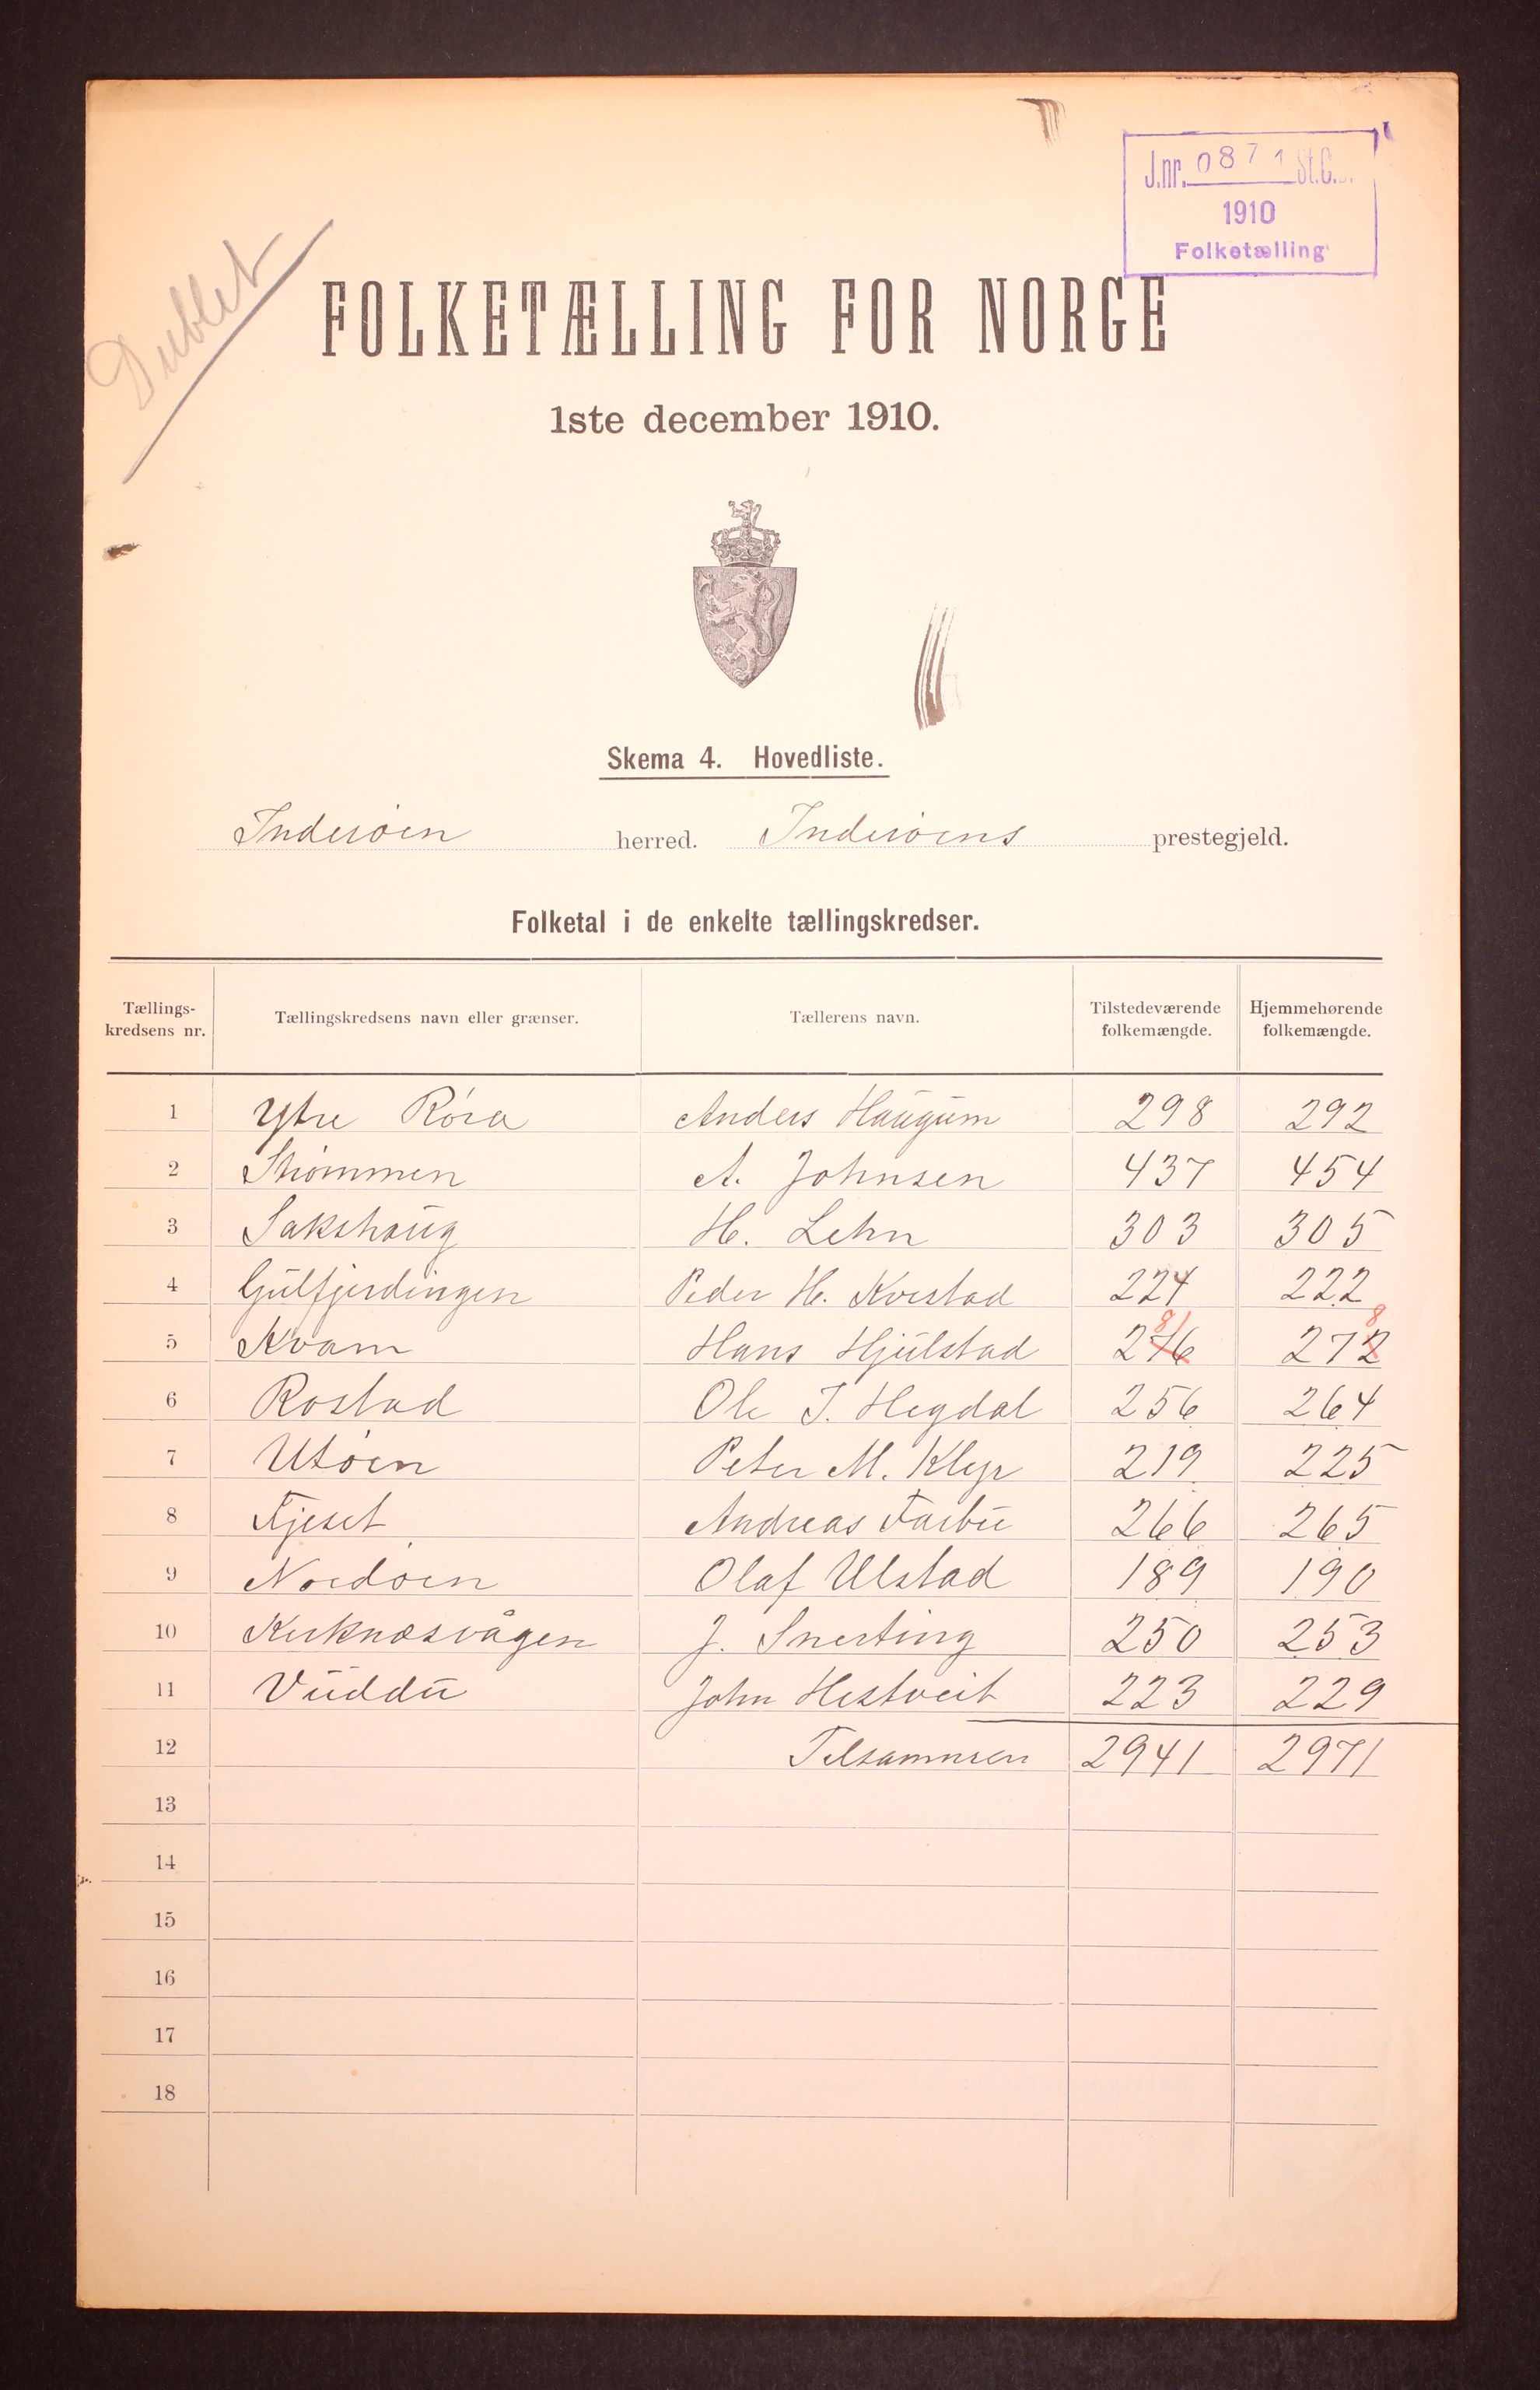 J.nr. 0871 St.C.
1910
Folketælling
Dublet
FOLKETÆLLING FOR NORGE
1ste december 1910.
Skema 4. Hovedliste.
Inderøen herred. Inderøens prestegjeld.
Folketal i de enkelte tællingskredser.
Tællings-kredsens nr. Tællingskredsens navn eller grænser. Tællerens navn. Tilstedeværende folkemængde. Hjemmehørende folkemængde.
1 Ytre Røra Anders Haugum 298 292
2 Strømmen A. Johnsen 437 454
3 Sakshaug H. Lehn 303 305
4 Gulfjerdingen Peder H. Kvistad 224 222
81 8
5 Kvam Hans Hjulstad 276 272
6 Rostad Ole J. Hegdal 256 264
7 Utøen Peter M. Kleps 219 225
8 Fjeset Andreas Farbu 266 265
9 Nordøen Olaf Ulstad 189 190
10 Kirknæsvågen J. Snerting 250 253
11 Vuddu John Hestveit 223 229
12 Tilsammen 2941 2971
13
14
15
16
17
18